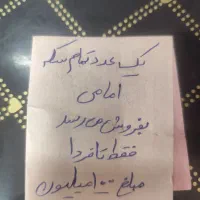 یک عدد تمام سکه
امامی
بفروش می رسد
فقط تا فردا
مبلغ ۱۰۰ میلیون